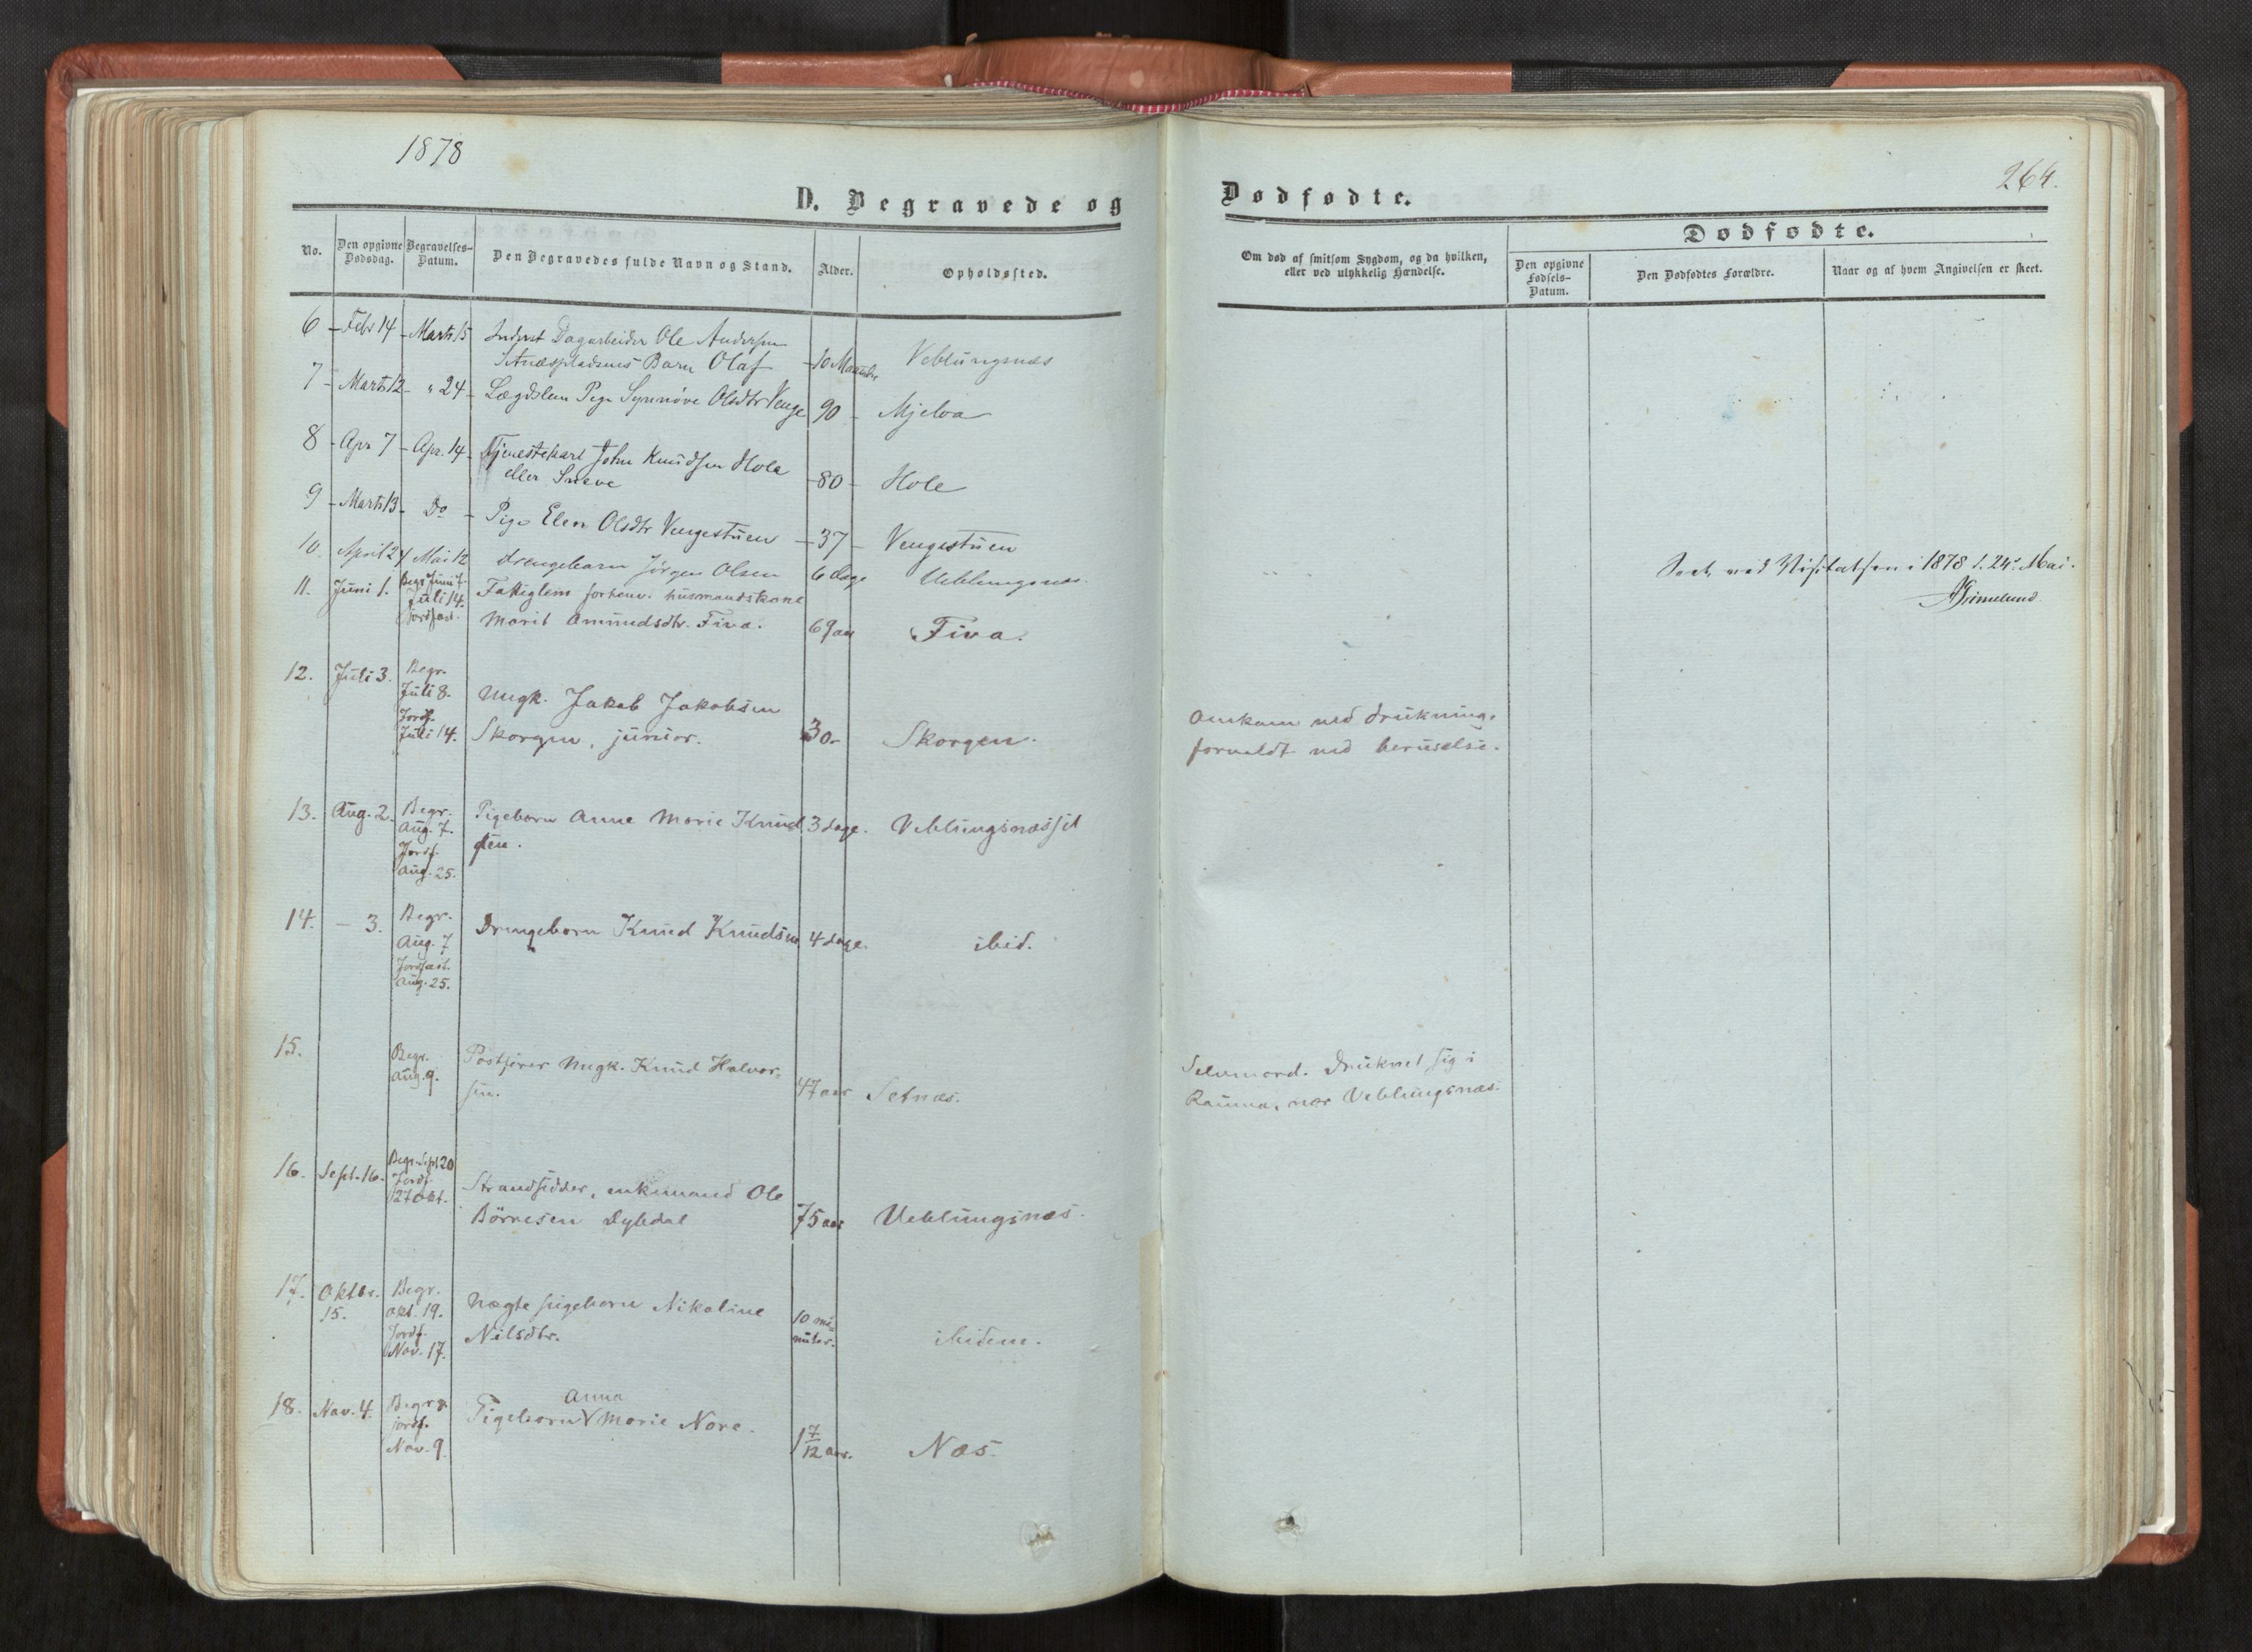 1878
D. Begravede og
No.
Den opgivne Dødsdag.
Begravelses-Datum.
Den Begravedes fulde Navn og Stand.
Alder.
Opholdssted.
6 - Febr 14 - Marts 15 Inderst Dagarbeider Ole Andersen
Setnæspladsens Barn Olaf - 10 Maaneder Veblungsnæs
7 - Marts 12 - " 24 - Lægdslem Pige Synnöve Olsdtr Venge 90 - Mjelva
8 - Apr 7 - Apr. 14 - Tjenestekarl John Knudsen Hole
eller Sneve - 80 - Hole
9 - Marts 13 - Do - Pige Elen Olsdtr Vengestuen - 37 - Vengestuen
10. April 24 Mai 12 drengebarn Jörgen Olsen 6 dage Veblungsnæs.
11. Juni 1. Begr Juni 7. Fattiglem forhenv. husmandskone
Juli 14.
jordfæst. Marit Amundsdtr. Fiva. 69 aar Fiva.
12. Juli 3. Begr.
Juli 8. Ungk. Jakob Jakobsen
Jordf.
Juli 14. Skorgen, junior. 30 - Skorgen.
13. Aug. 2. Begr. Pigebarn Anne Marie Knud 3 dage. Veblungsnæsset
Aug. 7. sen.
Jordf.
Aug. 25.
14. - 3. Begr. Drengebarn Knud Knudsen 4 dage. ibid.
Aug. 7
Jordfæst.
Aug. 25.
15. Begr. Postfører Ungk. Knud Halvor-
Aug. 9. sen. 47 aar Setnæs.
16. Sept. 16. Begr. Sept 20
Jordf. Strandsidder, enkemand Ole
27 Okt. Börresen Dybdal 75 aar Veblungsnæs.
17. Oktbr. Begr. Uægte pigebarn Nikoline 10 mi-
15. Okt. 19. Nilsdtr. nuter. ibidem.
Jordf.
Nov. 17.
Anna
18. Nov. 4. Begr & Pigebarn Marie Nora.
jordf. 1 7/12 aar. Næs.
Nov. 9.
264.
Dødfødte.
Om død af smitsom Sygdom, og da hvilken,
eller ved ulykkelig Hændelse.
Dødfødte.
Den opgivne Fødsels-Datum.
Den Dødfødtes Forældre.
Naar og af hvem Angivelsen er skeet.
Seet ved Visitatsen i 1878 d. 24de Mai.
Grimelund
Omkom ved drukning,
forvoldt ved beruselse.
Selvmord. Druknet sig i
Rauma, nær Veblungsnæs.